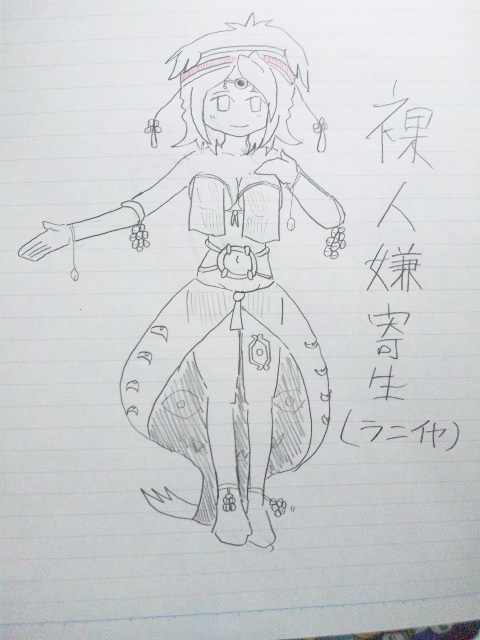 裸人嫌寄生
(ラニイヤ)